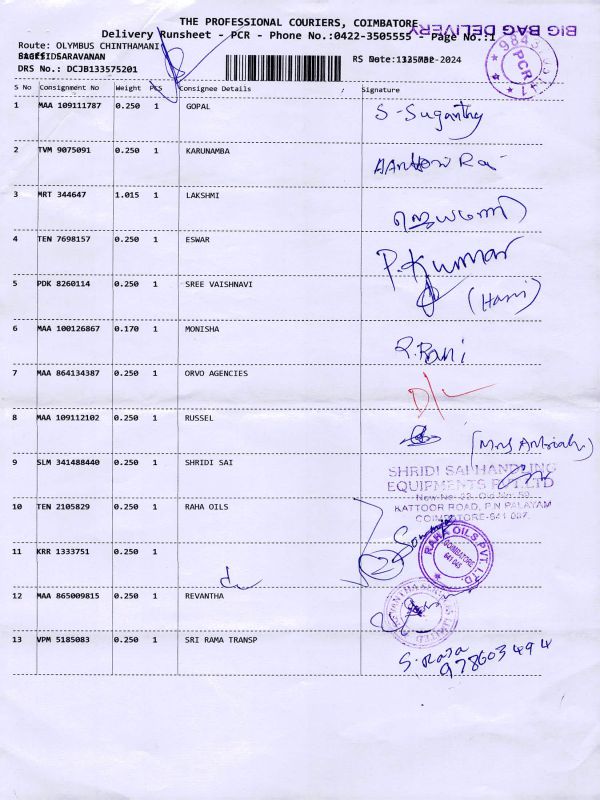 THE PROFESSIONAL COURIERS, COIMBATORE
BIG BAG DELIVERY
Delivery Runsheet - PCR - Phone No.:0422-3505555 - Page No.:1
Route: OLYMPUS CHINTHAMANI
SARAVANAN
DRS No.: DCJB133575201
PCR
S No Consignment No Weight PCS Consignee Details Signature
1 MAA 109111787 0.250 1 GOPAL S-Suganthy
2 TVM 9075091 0.250 1 KARUNAMBA
3 MRT 344647 1.015 1 LAKSHMI
4 TEN 7698157 0.250 1 ESWAR P.Kumar
5 PDK 8260114 0.250 1 SREE VAISHNAVI
6 MAA 100126867 0.170 1 MONISHA R.Rani
7 MAA 864134387 0.250 1 ORVO AGENCIES D/L
8 MAA 109112102 0.250 1 RUSSEL
9 SLM 341488440 0.250 1 SHRIDI SAI
SHRIDI SAI HANDLING
EQUIPMENTS PVT.LTD
KATTOOR ROAD, P.N PALAYAM
COIMBATORE-641 037.
10 TEN 2105829 0.250 1 RAHA OILS
RAHA OILS PVT. LTD.
COIMBATORE
641 045
11 KRR 1333751 0.250 1
12 MAA 865009815 0.250 1 REVANTHA
13 VPM 5185083 0.250 1 SRI RAMA TRANSP S.Raja
978603494